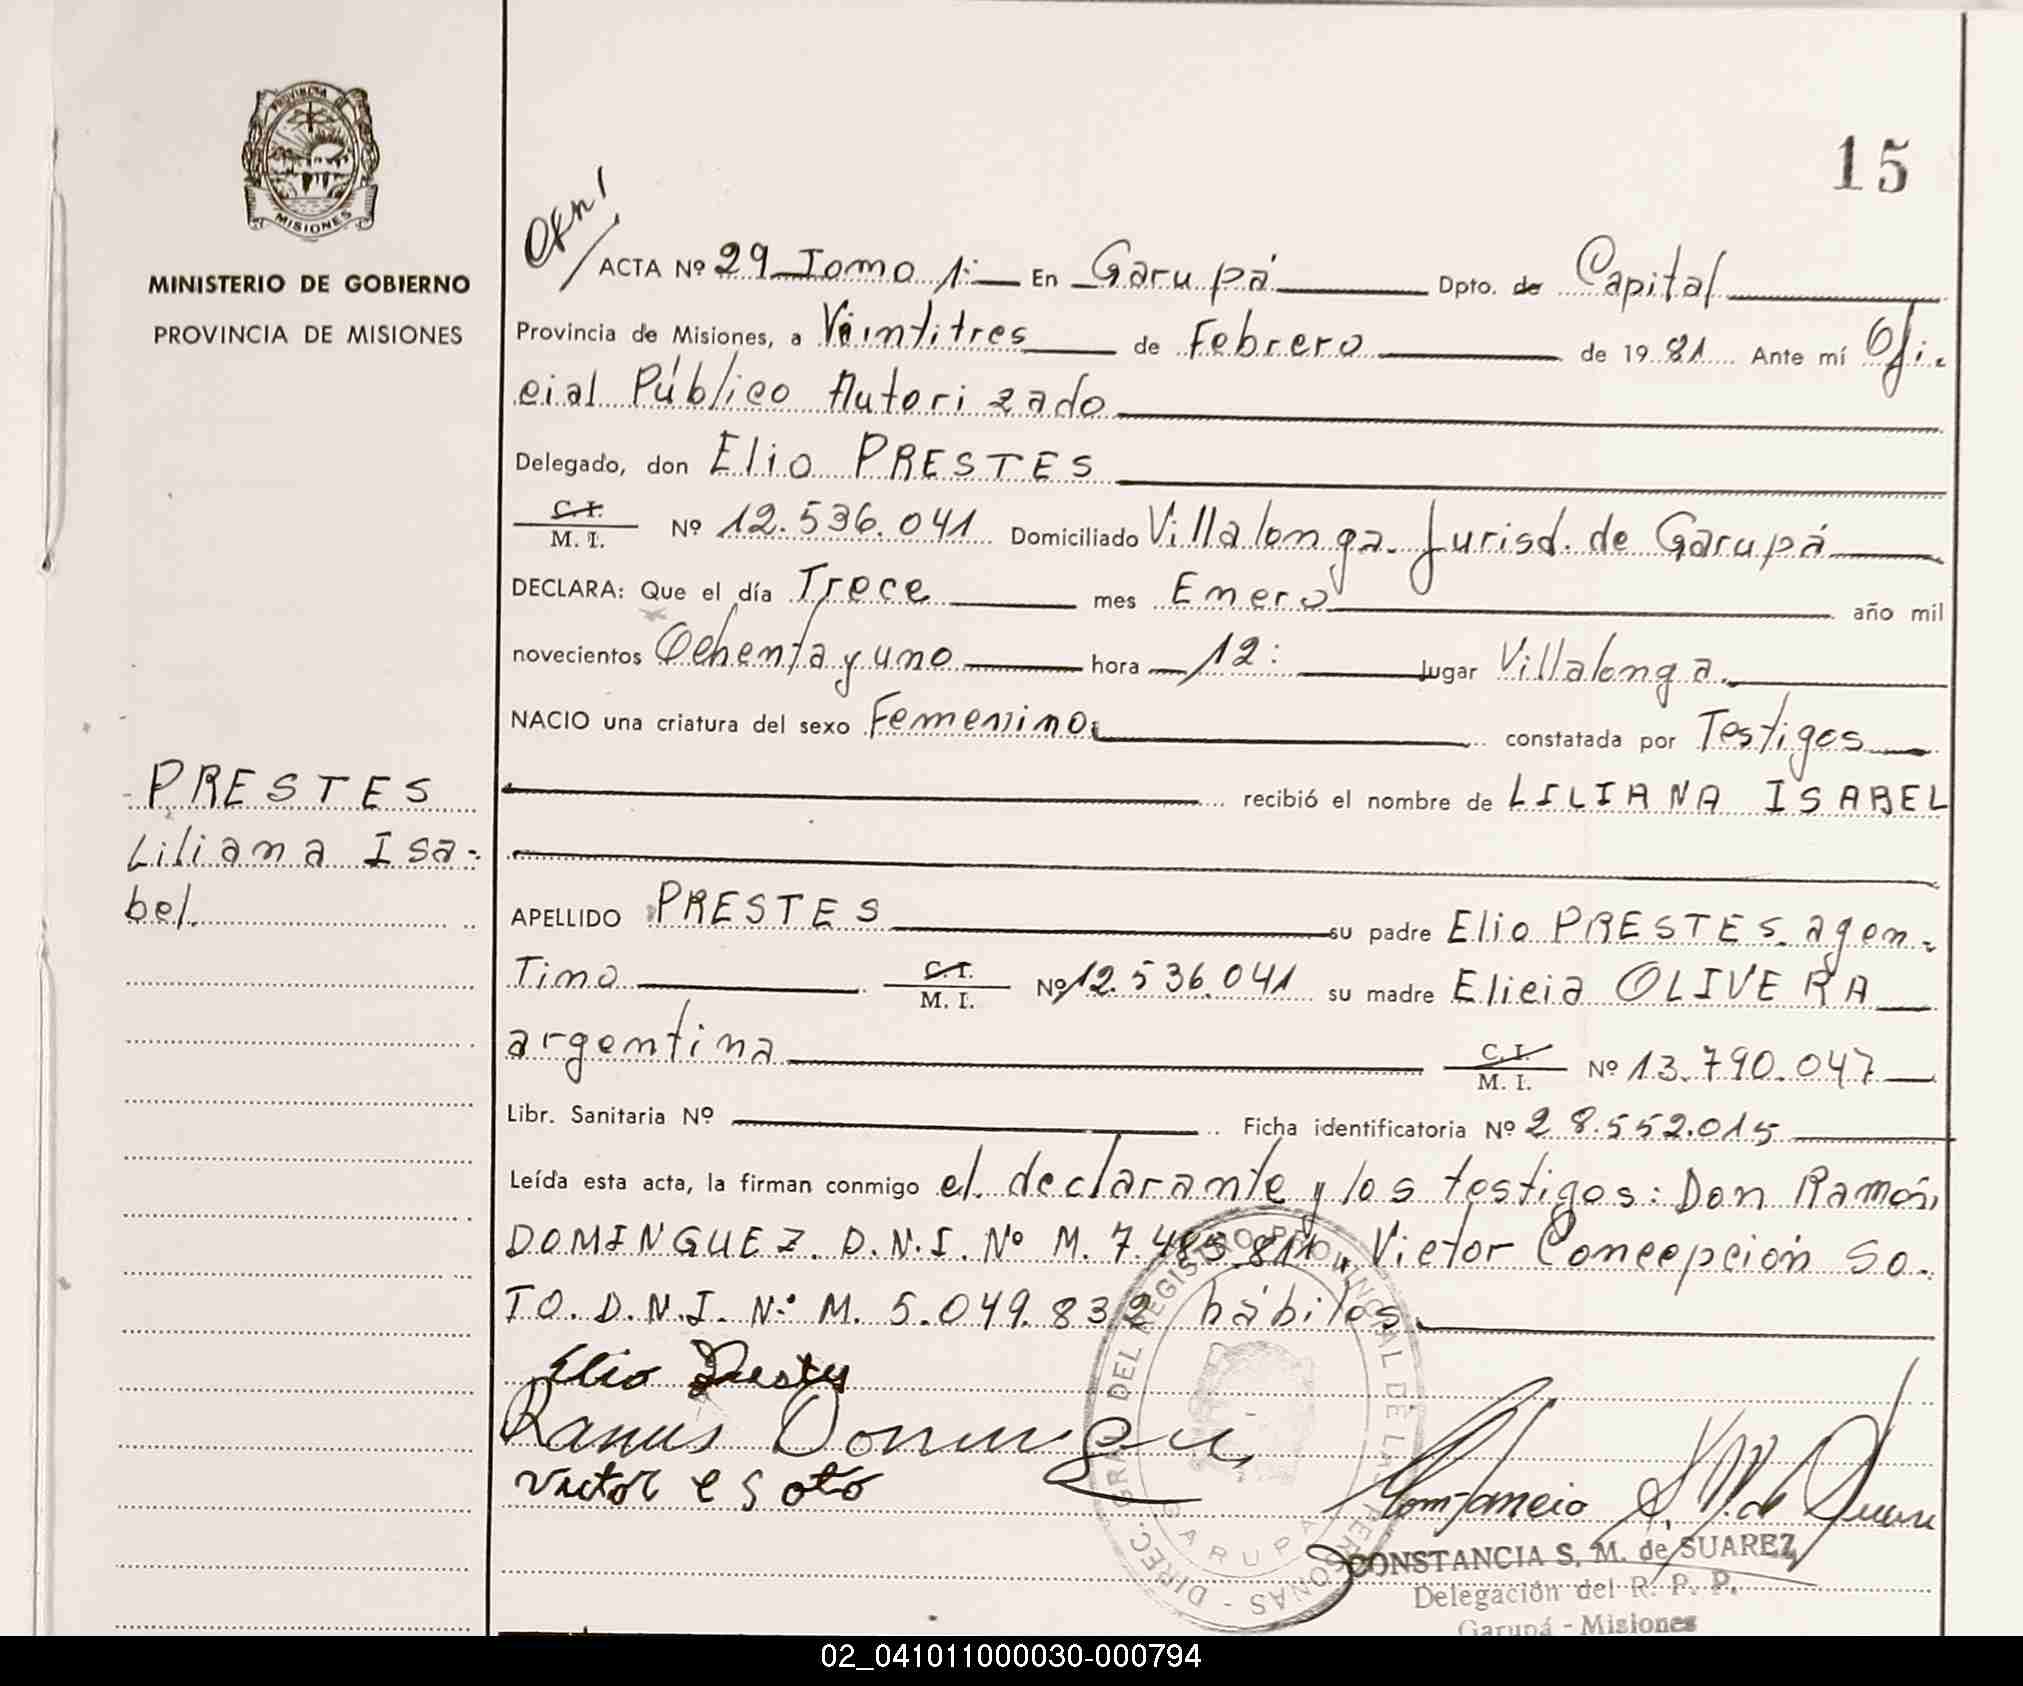 PROVINCIA DE
MISIONES
MINISTERIO DE GOBIERNO
PROVINCIA DE MISIONES
15
ACTA Nº 29 Tomo 1: En Garupá Dpto. de Capital
Provincia de Misiones, a Veintitres de Febrero de 1981 Ante mí Ofi-
cial Público Autorizado
Delegado, don Elio PRESTES
C.I.
M. I. Nº 12.536.041 Domiciliado Villalonga. Jurisd. de Garupá
DECLARA: Que el día Trece mes Enero año mil
novecientos Ochenta y uno hora 12: lugar Villalonga.
NACIO una criatura del sexo Femenino constatada por Testigos
recibió el nombre de LILIANA ISABEL
PRESTES
Liliana Isa-
bel.
APELLIDO PRESTES su padre Elio PRESTES. agen-
Tino C.I.
M. I. Nº 12.536.041 su madre Elicia OLIVERA
argentina C.I.
M. I. Nº 13.790.047
Libr. Sanitaria Nº Ficha identificatoria Nº 28.552.015
Leída esta acta, la firman conmigo el declarante y los testigos: Don Ramón
DOMINGUEZ. D.N.I. Nº M. 7.485.811, Victor Concepción SO-
TO. D.N.I. Nº M. 5.049.832 hábiles.
Elio Prestes
Ramus Domingu
Victor e soto
DIREC. GRAL. DEL REGISTRO PROVINCIAL DE LAS PERSONAS -
GARUPA
CONSTANCIA S. M. de SUAREZ
Delegación del R. P. P.
Garupá - Misiones
02_041011000030-000794